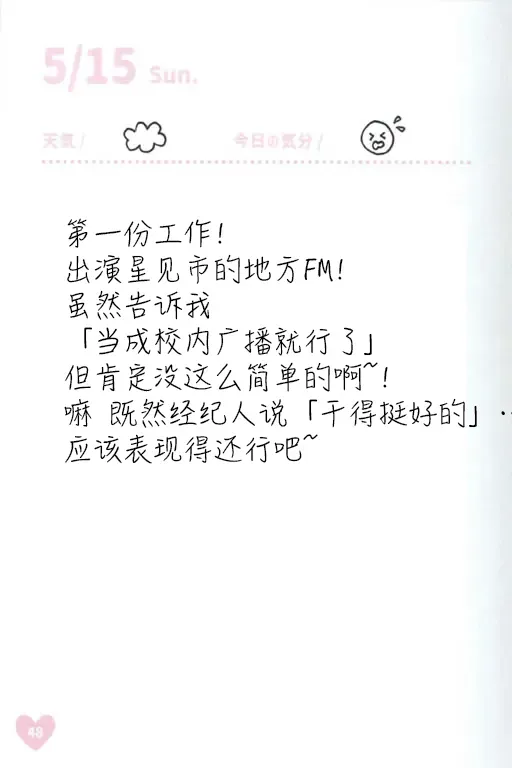 5/15 Sun.
天気 / 今日の気分 /
第一份工作!
出演星见市的地方FM!
虽然告诉我
「当成校内广播就行了」
但肯定没这么简单的啊~!
嘛 既然经纪人说「干得挺好的」…
应该表现得还行吧~
48